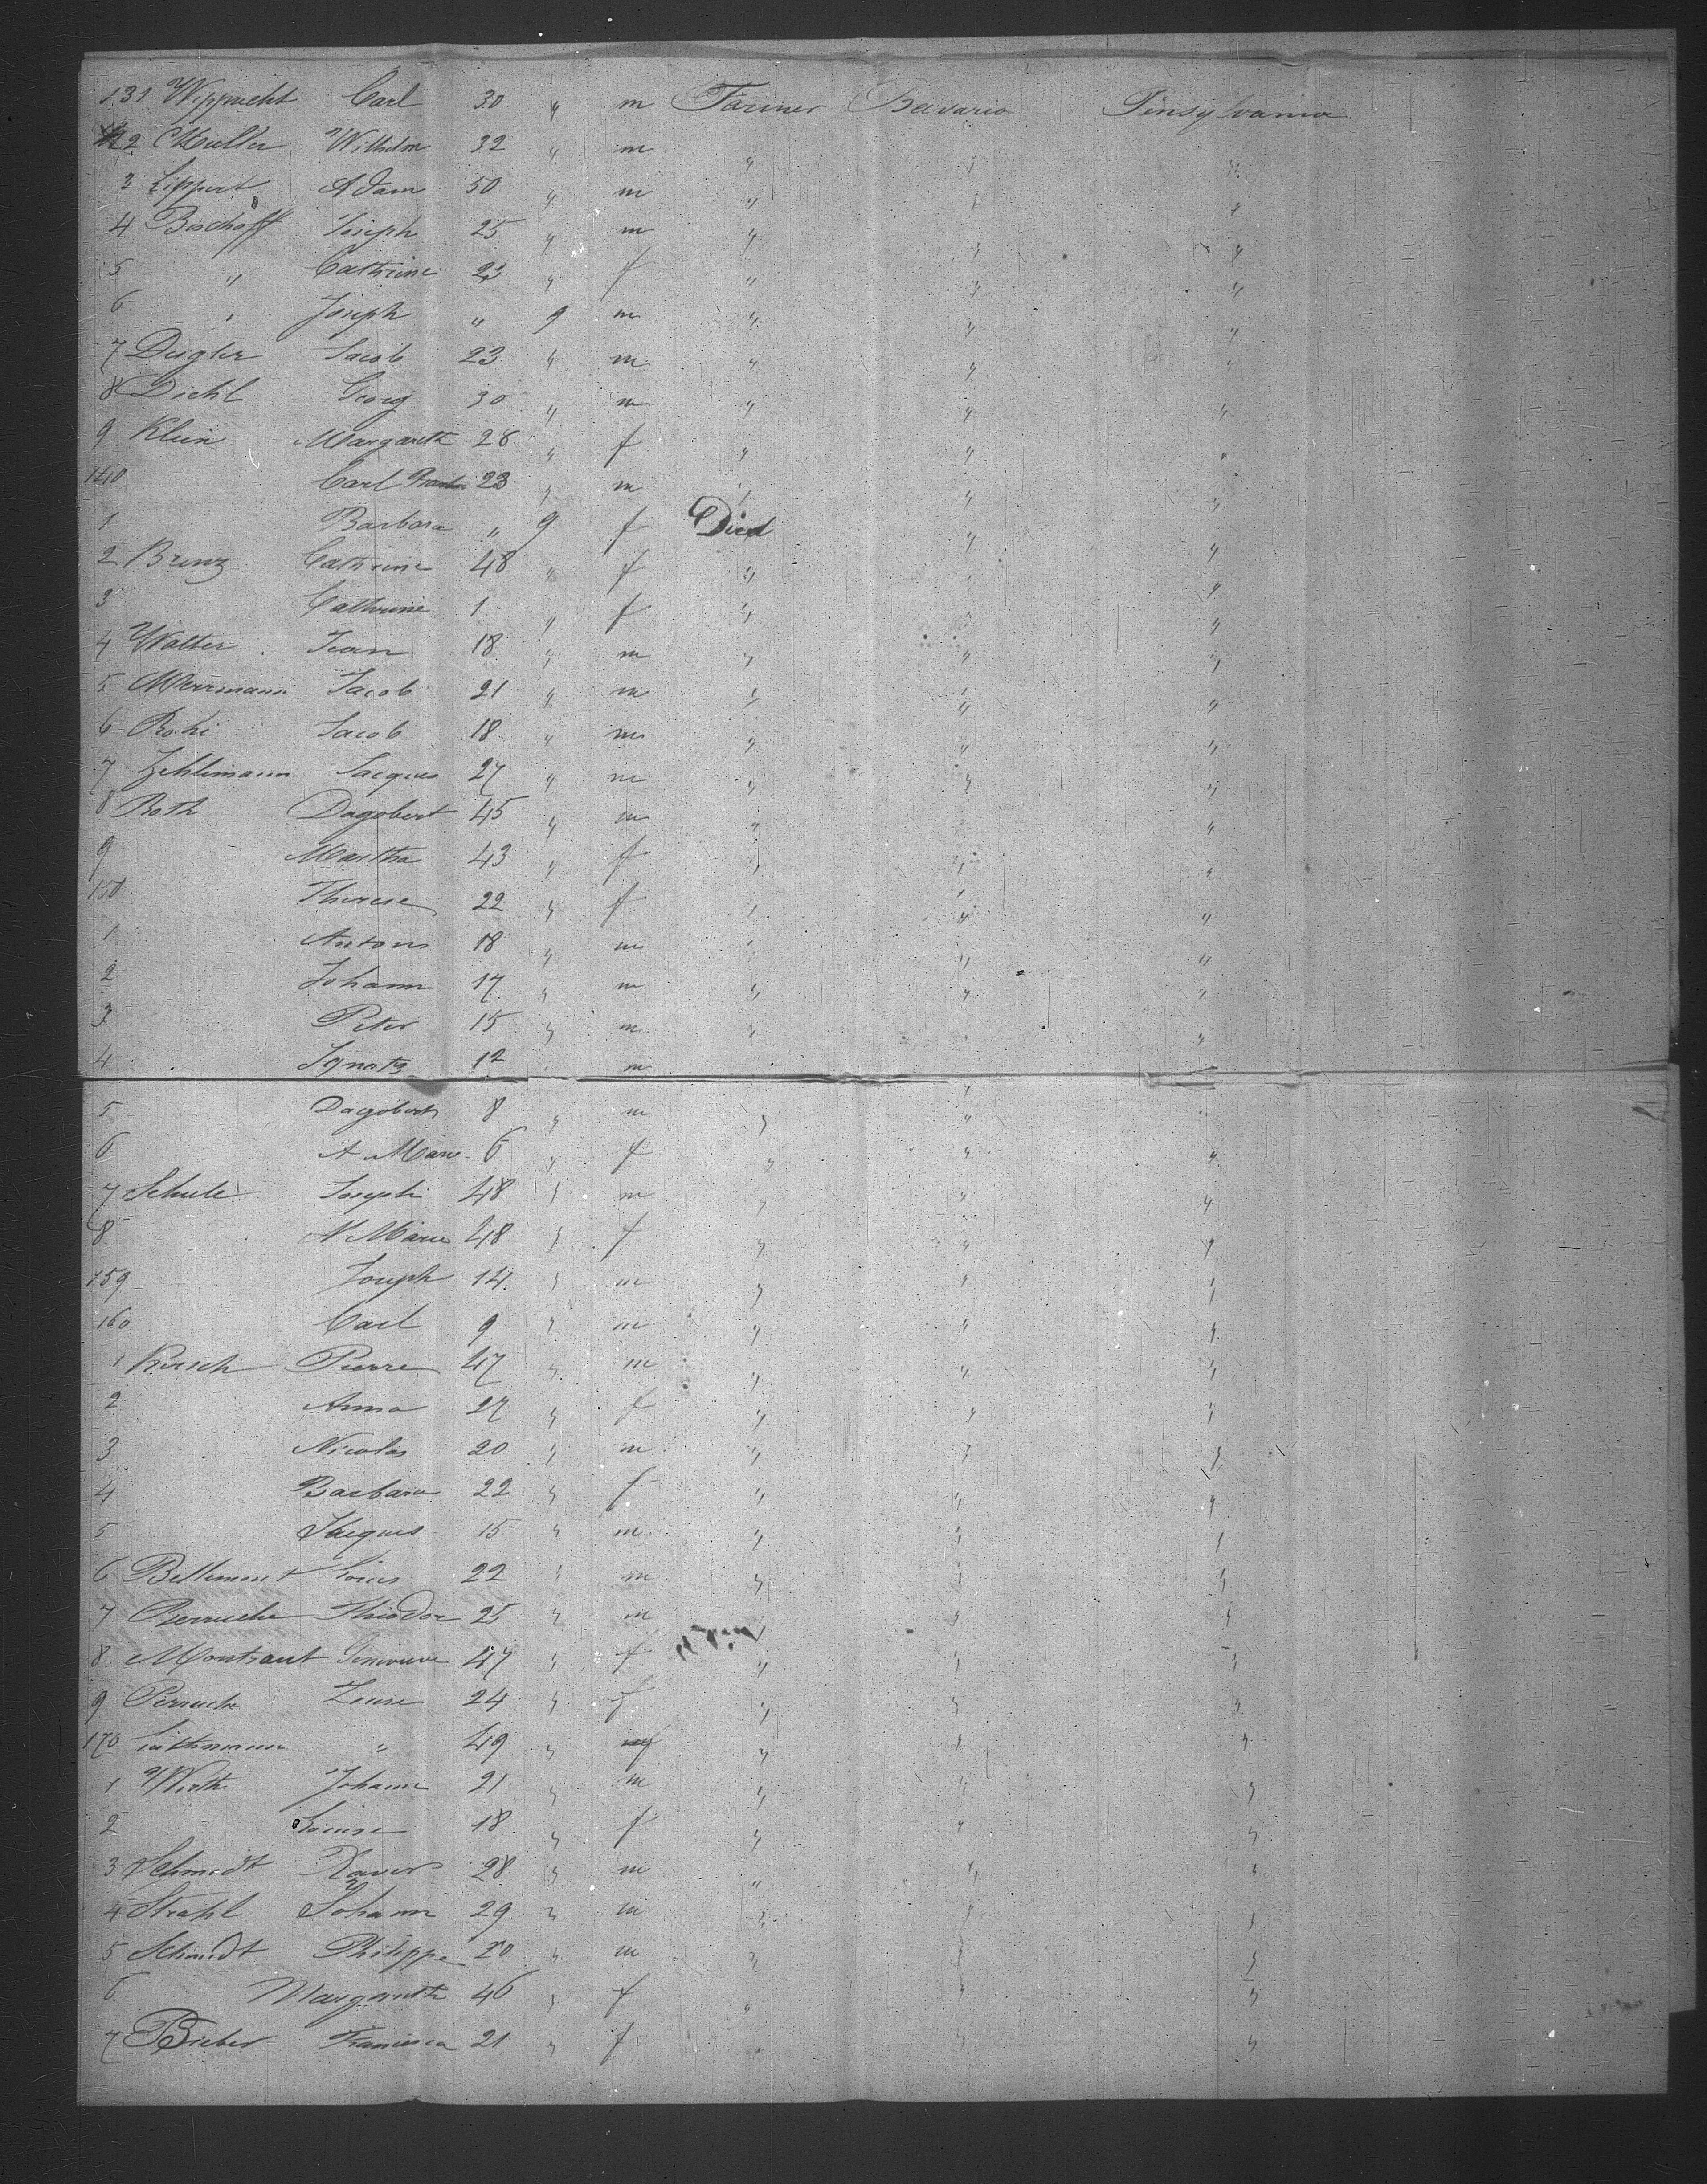 131 Wipprecht Carl 30 " m Farmer Bavaria Pensylvania
2 Muller Wilhelm 32 " m " " "
3 Lippert Adam 50 " m " " "
4 Bischoff Joseph 25 " m " " "
5 " Cathrine 23 " f " " "
6 " Joseph " 9 m " " "
7 Degler Jacob 23 " m " " "
8 Diehl Georg 30 " m " " "
9 Klein Margareth 28 " f " " "
140 Carl 23 " m " " "
1 Barbara " 9 f Died " "
2 Brenz Cathrine 48 " f " " "
3 Cathrine 1 " f " " "
4 Walter Jean 18 " m " " "
5 Merrmann Jacob 21 " m " " "
6 Jacob 18 " m " " "
7 Zehlimann Jacques 27 " m " " "
8 Roth Dagobert 45 " m " " "
9 Martha 43 " f " " "
150 Therese 22 " f " " "
1 Antons 18 " m " " "
2 Johann 17 " m " " "
3 Peter 15 " m " " "
4 Ignatz 12 " m
5 Dagobert 8 " m " "
6 A Marie 6 " f " " "
7 Schule Joseph 48 " m " " "
8 A Marie 48 " f " " "
159 Joseph 14 " m " " "
160 Carl 9 " m " " "
1 Kirsch Pierre 47 " m " " "
2 Anna 27 " f " " "
3 Nicolas 20 " m " " "
4 Barbara 22 " f " " "
5 Jacques 15 " m " " "
6 Bellemont Louis 22 " m " " "
7 Perruche Theodor 25 " m " " "
8 Montraut Genevieve 47 " f " " "
9 Perruche Louise 24 " f " " "
170 " 49 " f " " "
1 Wirth Johann 21 " m " " "
2 Louise 18 " f " " "
3 Schmidt Xaver 28 " m " " "
4 Strahl Johann 29 " m " " "
5 Schmidt Philippe 20 " m " " "
6 Margareth 46 " f " " "
7 Bieber Francisca 21 " f " " "